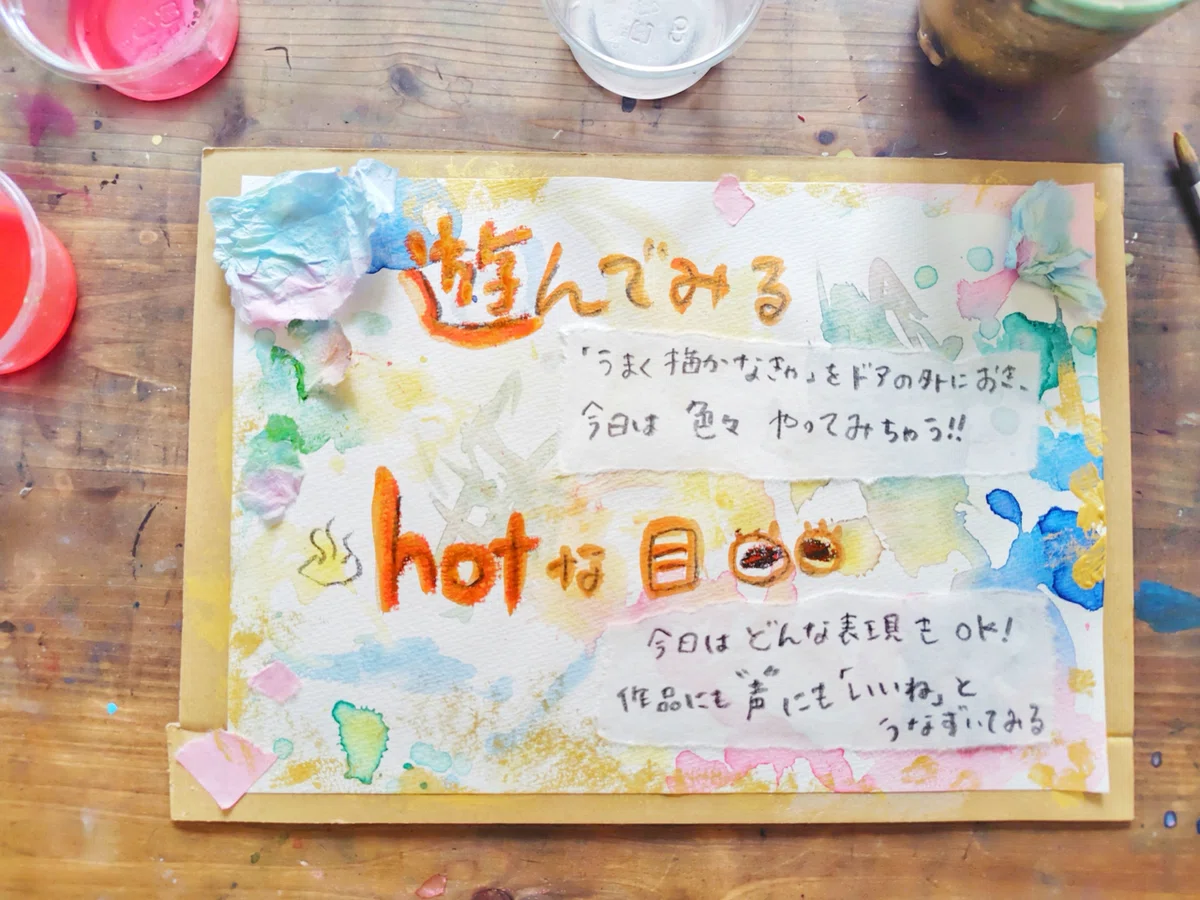 遊んでみる
「うまく描かなきゃ」をドアの外におき、
今日は 色々 やってみちゃう!!
hotな目
今日は どんな表現も OK!
作品にも "声"にも「いいね」と
うなずいてみる